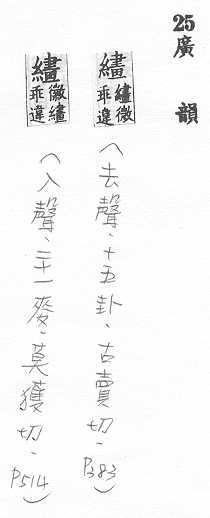 25廣韻
繣繣徽乖違
（去聲、十五卦、古賣切、P383）
繣徽繣乖違
（入聲、二十一麥、莫獲切、P514）